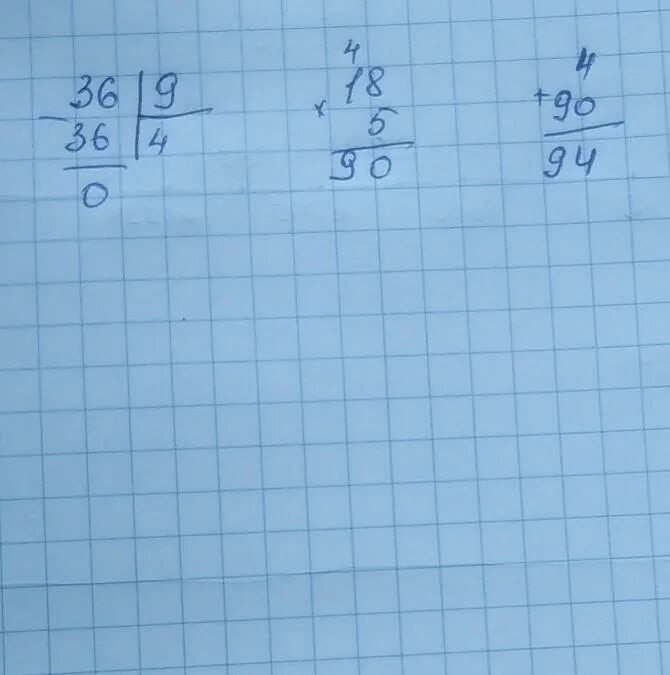 36 | 9
− 36 | 4
0
4
18
× 5
90
4
+ 90
94